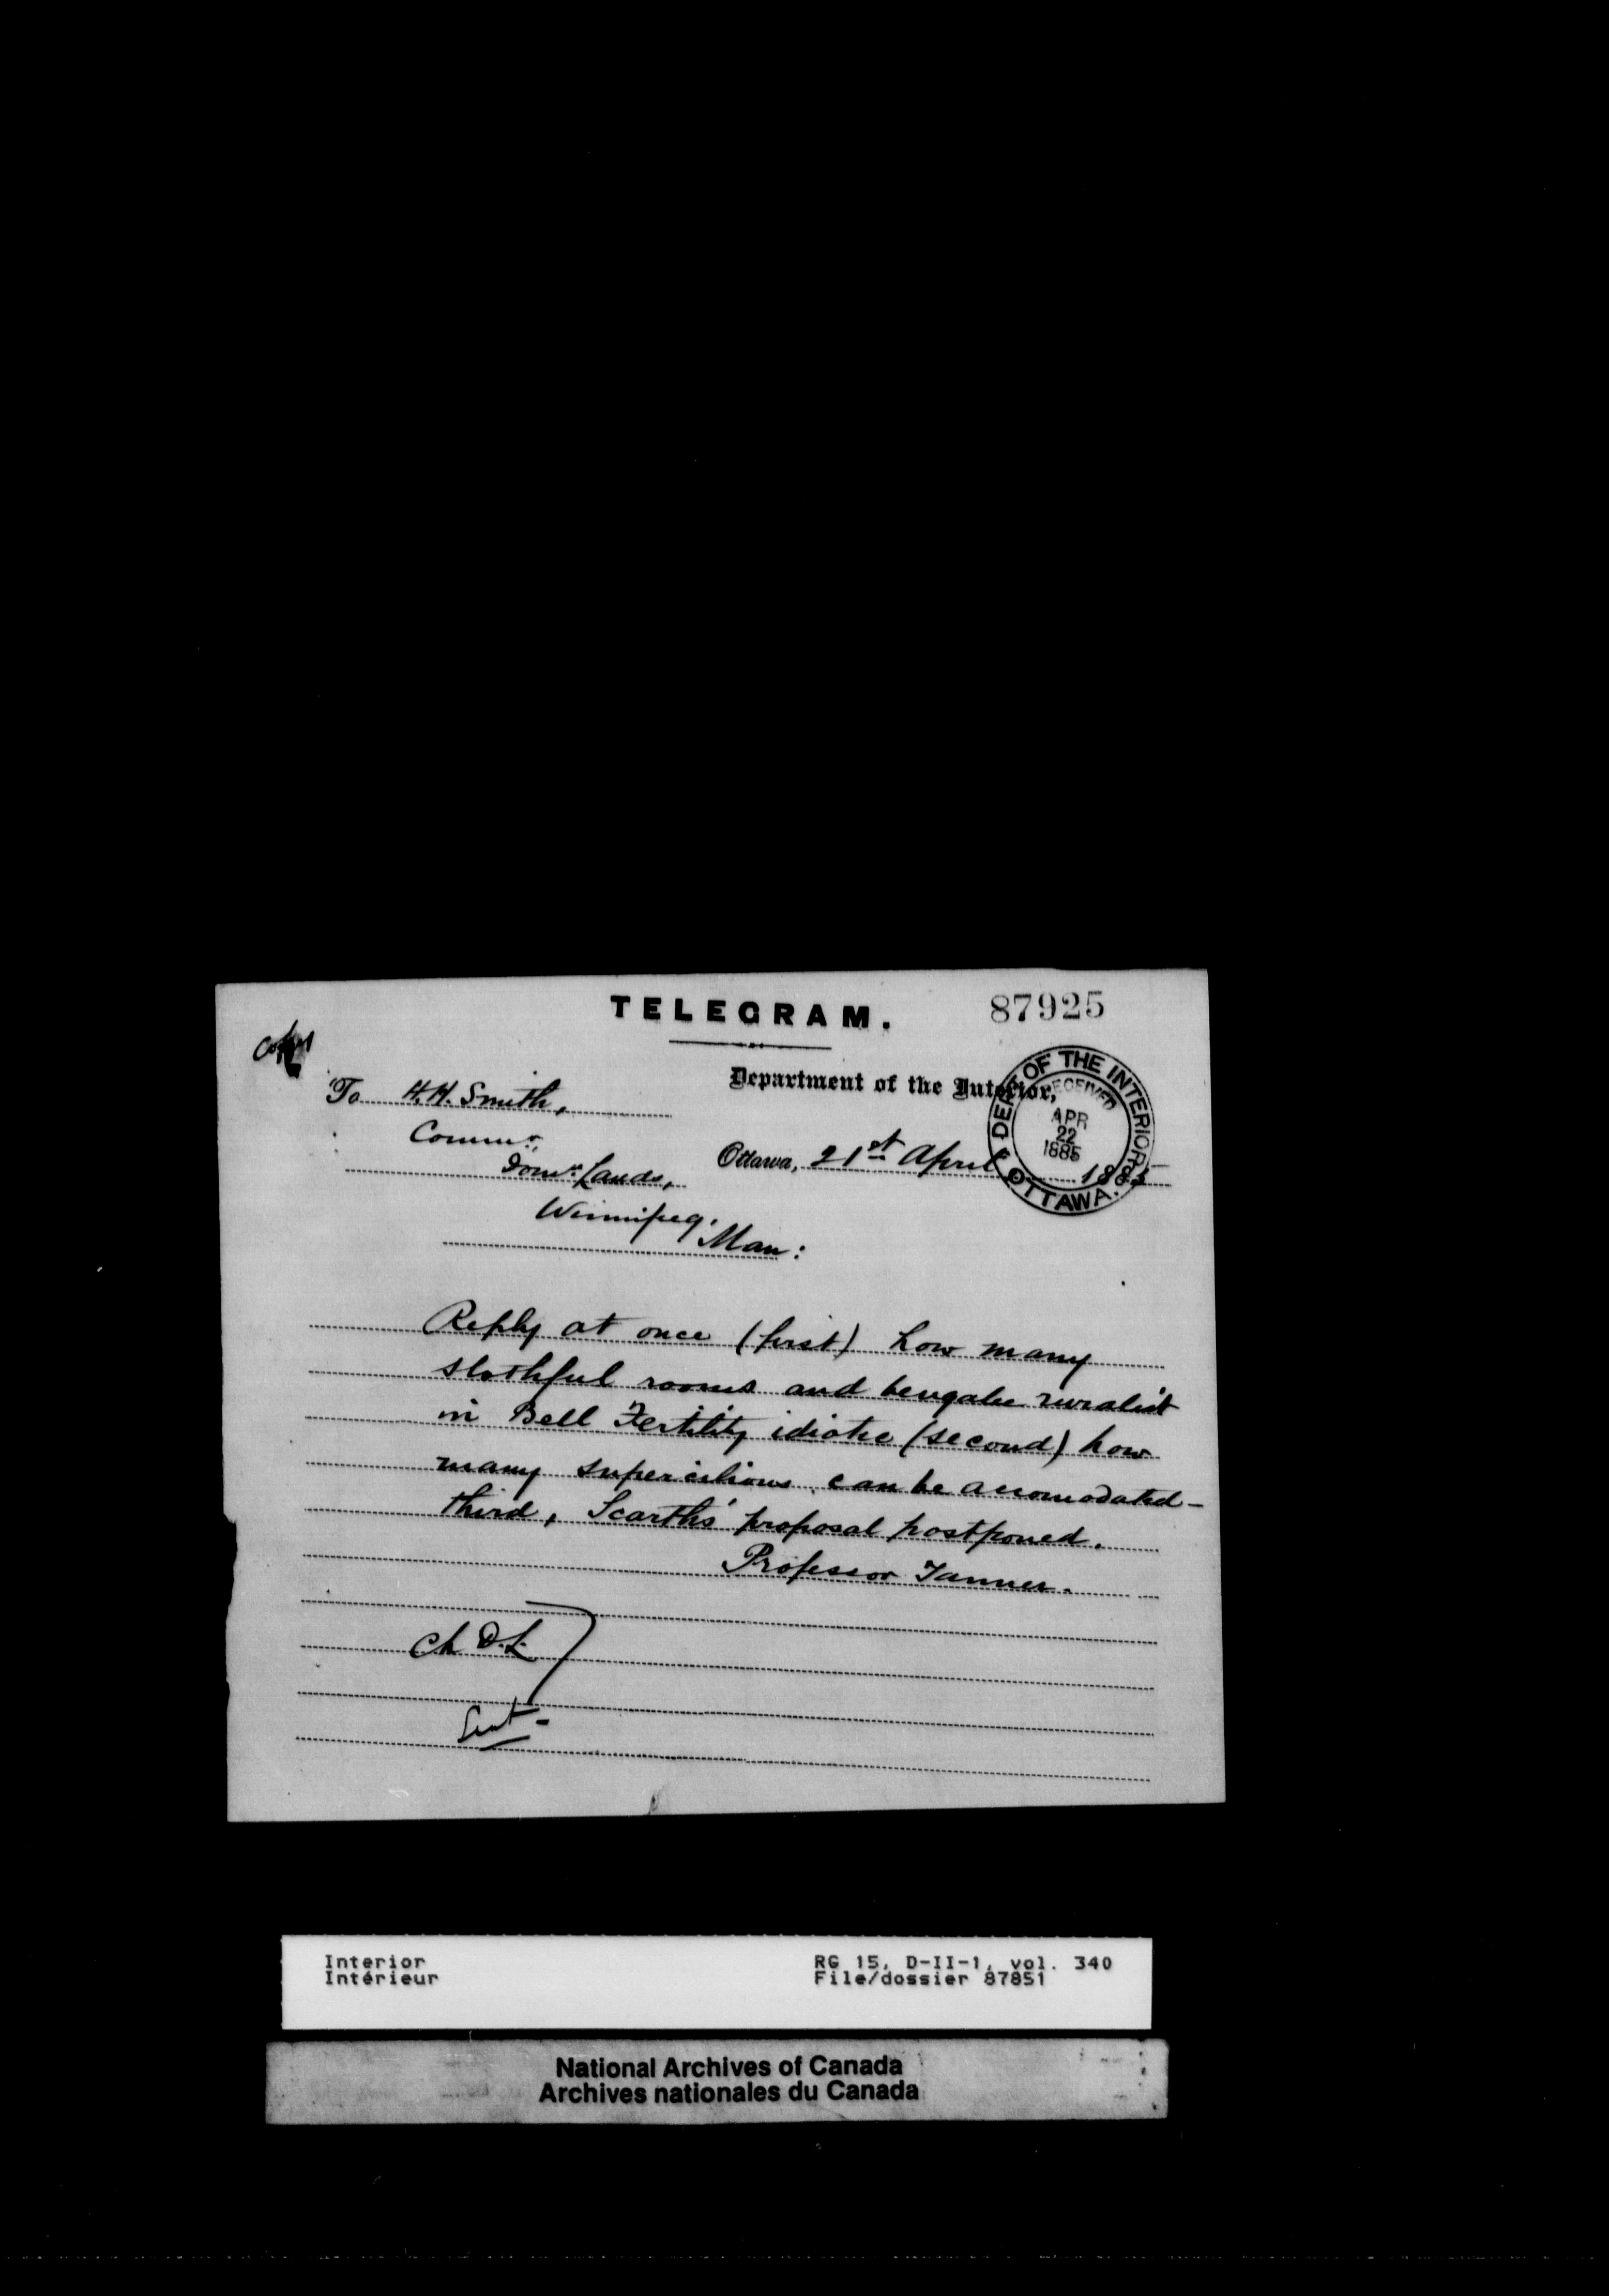 TELEGRAM.
87925
Copy
Department of the Interior,
DEPT OF THE INTERIOR
RECEIVED
APR
22
1885
OTTAWA.
To H.H. Smith,
Commr.
Domn. Lands,
Winnipeg.
Man:
Ottawa, 21st April 1885
Reply at once (first) how many
slothful rooms and bengalee ruralist
in Bell Fertility idiotic (second) how
many supercilious can be accomodated -
third, Scarth's proposal postponed.
Professor Tanner.
Ch D.L.
Sent -
Interior
Intérieur
RG 15, D-II-1, vol. 340
File/dossier 87851
National Archives of Canada
Archives nationales du Canada